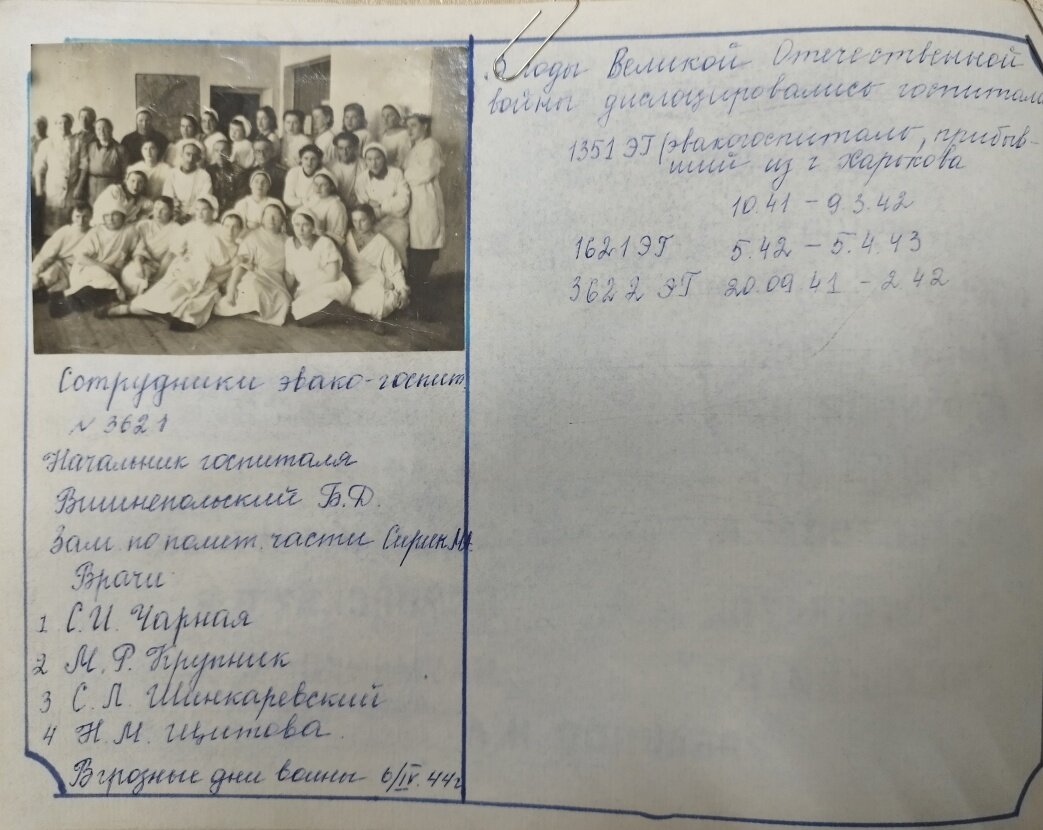 Сотрудники эвако-госпит.
№ 3621
Начальник госпиталя
Вишнепольский Б.Д.
Зам по полит. части Сирин
Врачи
1 С.И. Чарная
2 М.Р. Крупник
3 С.Л. Шинкаревский
4 Н.М.
В грозные дни войны 6/IV.44г
В годы Великой Отечественной
войны дислоцировались госпитали
1351 ЭГ /эвакогоспиталь, прибыв-
ший из г Харькова
10.41 - 9.3.42
1621 ЭГ 5.42 - 5.4.43
3622 ЭГ 20.09 41 - 2.42